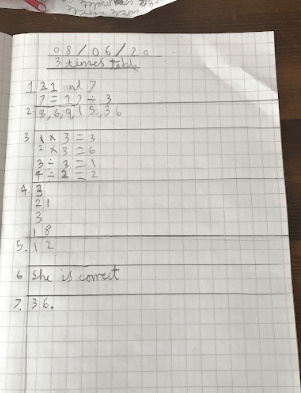 08/06/20
3 times table
1. 21 and 7
7 = 21 ÷ 3
2. 3, 6, 9, 15, 36
3. 1 × 3 = 3
2 × 3 = 6
3 ÷ 3 = 1
4 ÷ 2 = 2
4. 3
21
3
18
5. 12
6 She is correct
7. 36.